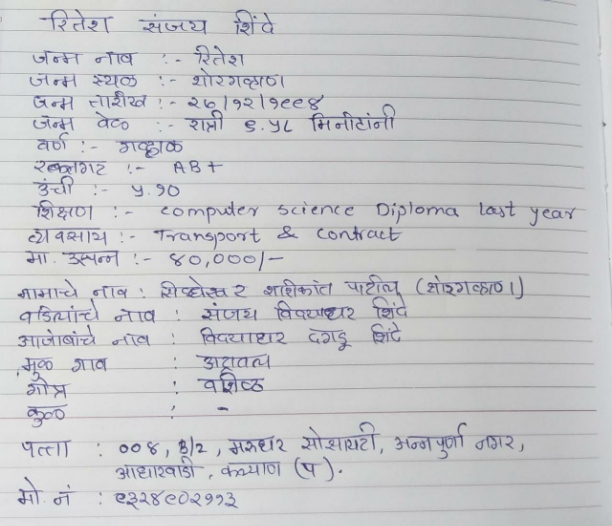 रितेश संजय शिंदे
जन्म नाव :- रितेश
जन्म स्थळ :- शोरगव्हाण
जन्म तारीख :- २७/१२/१९९४
जन्म वेळ :- रात्री ९.५८ मिनीटांनी
वर्ण :- गव्हाळ
रक्तगट :- AB+
उंची :- ५.१०
शिक्षण :- Computer Science Diploma last year
व्यवसाय :- Transport & Contract
मा. उत्पन्न :- ४०,०००/-
मामाचे नाव : सिध्देश्वर शशिकांत पाटील (शोरगव्हाण)
वडिलांचे नाव : संजय विद्याधर शिंदे
आजोबांचे नाव : विद्याधर दगडू शिंदे
मुळ गाव : अट्रावल
गोत्र : वशिष्ठ
कुळ : -
पत्ता : ००४, B/२, मरुधर सोसायटी, अन्नपुर्णा नगर,
आधारवाडी, कल्याण (प).
मो. नं : ९३२४९०२११३